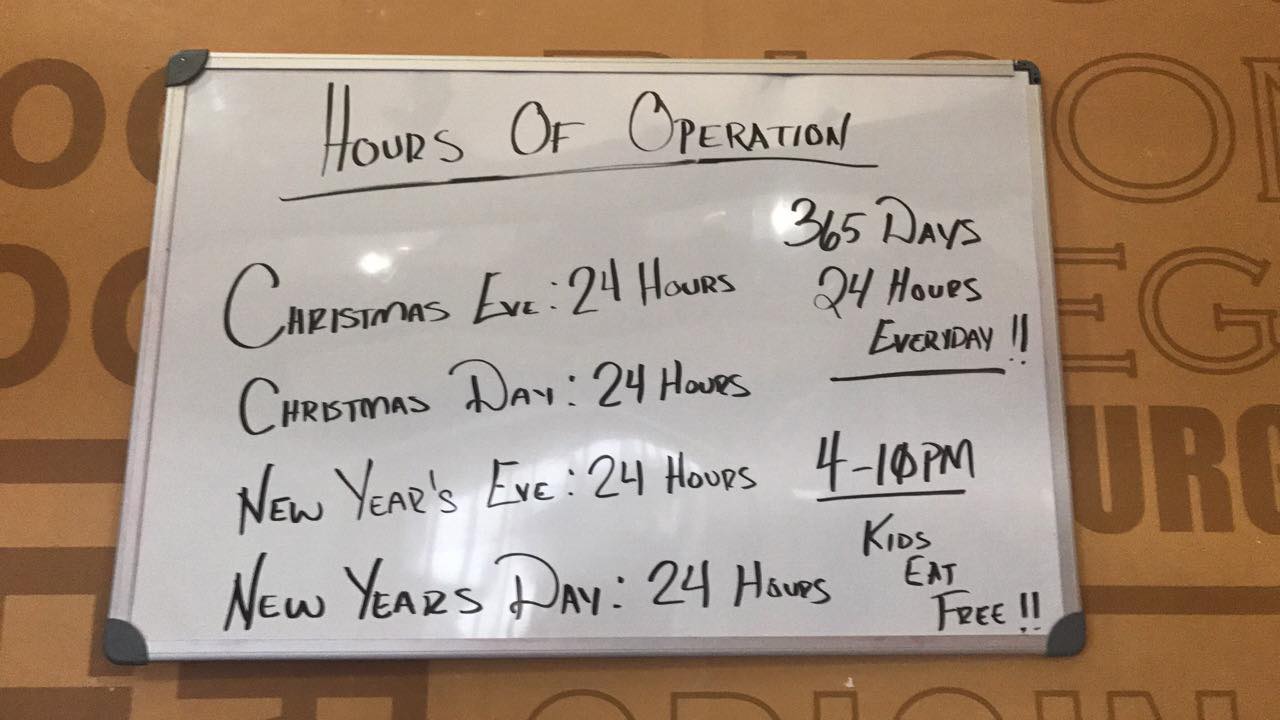 HOURS OF OPERATION
365 DAYS
24 HOURS
EVERYDAY!!
CHRISTMAS EVE: 24 HOURS
CHRISTMAS DAY: 24 HOURS
NEW YEAR'S EVE: 24 HOURS
NEW YEARS DAY: 24 HOURS
4-10PM
KIDS
EAT
FREE!!